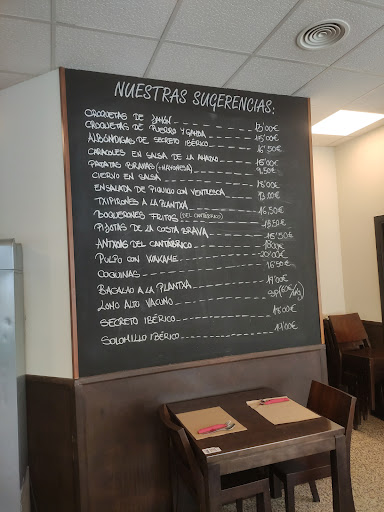 NUESTRAS SUGERENCIAS:
CROQUETAS DE JAMÓN 15'00€
CROQUETAS DE PUERRO Y GAMBA 15'00€
ALBÓNDIGAS DE SECRETO IBÉRICO 16'50€
CARACOLES EN SALSA DE LA AMATXO 18'00€
PATATAS BRAVAS (+MAYONESA) 9,50€
CIERVO EN SALSA 18'00€
ENSALADA DE PIQUILLO CON VENTRESCA 13,00€
TXIPIRONES A LA PLANTXA 16,50€
BOQUERONES FRITOS (DEL CANTÁBRICO) 13,50€
PIJOTAS DE LA COSTA BRAVA 15'50€
ANTXOAS DEL CANTÁBRICO 18'00€
PULPO CON WAKAME 20'00€
COQUINAS 16'50€
BACALAO A LA PLANTXA 19'00€
LOMO ALTO VACUNO SP(60€/kg)
SECRETO IBÉRICO 18'00€
SOLOMILLO IBÉRICO 19'00€